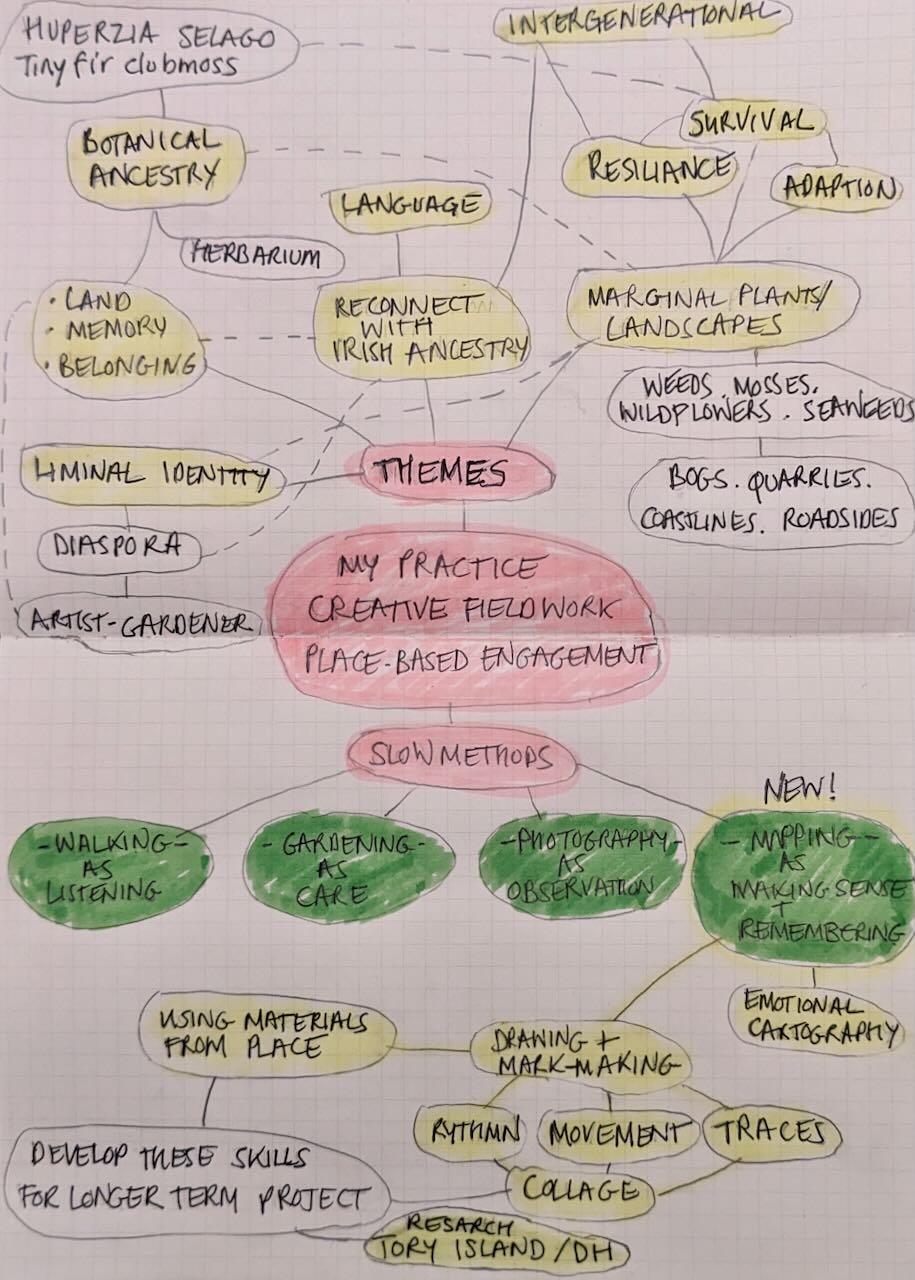 HUPERZIA SELAGO
Tiny fir clubmoss
INTERGENERATIONAL
BOTANICAL
ANCESTRY
SURVIVAL
RESILIANCE
ADAPTION
LANGUAGE
HERBARIUM
• LAND
• MEMORY
• BELONGING
RECONNECT
WITH
IRISH ANCESTRY
MARGINAL PLANTS/
LANDSCAPES
WEEDS. MOSSES.
WILDFLOWERS. SEAWEEDS
BOGS. QUARRIES.
COASTLINES. ROADSIDES
LIMINAL IDENTITY
THEMES
DIASPORA
ARTIST-GARDENER
MY PRACTICE
CREATIVE FIELDWORK
PLACE-BASED ENGAGEMENT
SLOW METHODS
NEW!
- WALKING -
AS
LISTENING
- GARDENING -
AS
CARE
- PHOTOGRAPHY -
AS
OBSERVATION
- MAPPING -
AS
MAKING SENSE
+
REMEMBERING
EMOTIONAL
CARTOGRAPHY
USING MATERIALS
FROM PLACE
DRAWING +
MARK-MAKING
RYTHMN
MOVEMENT
TRACES
COLLAGE
DEVELOP THESE SKILLS
FOR LONGER TERM PROJECT
RESARCH
TORY ISLAND/DH